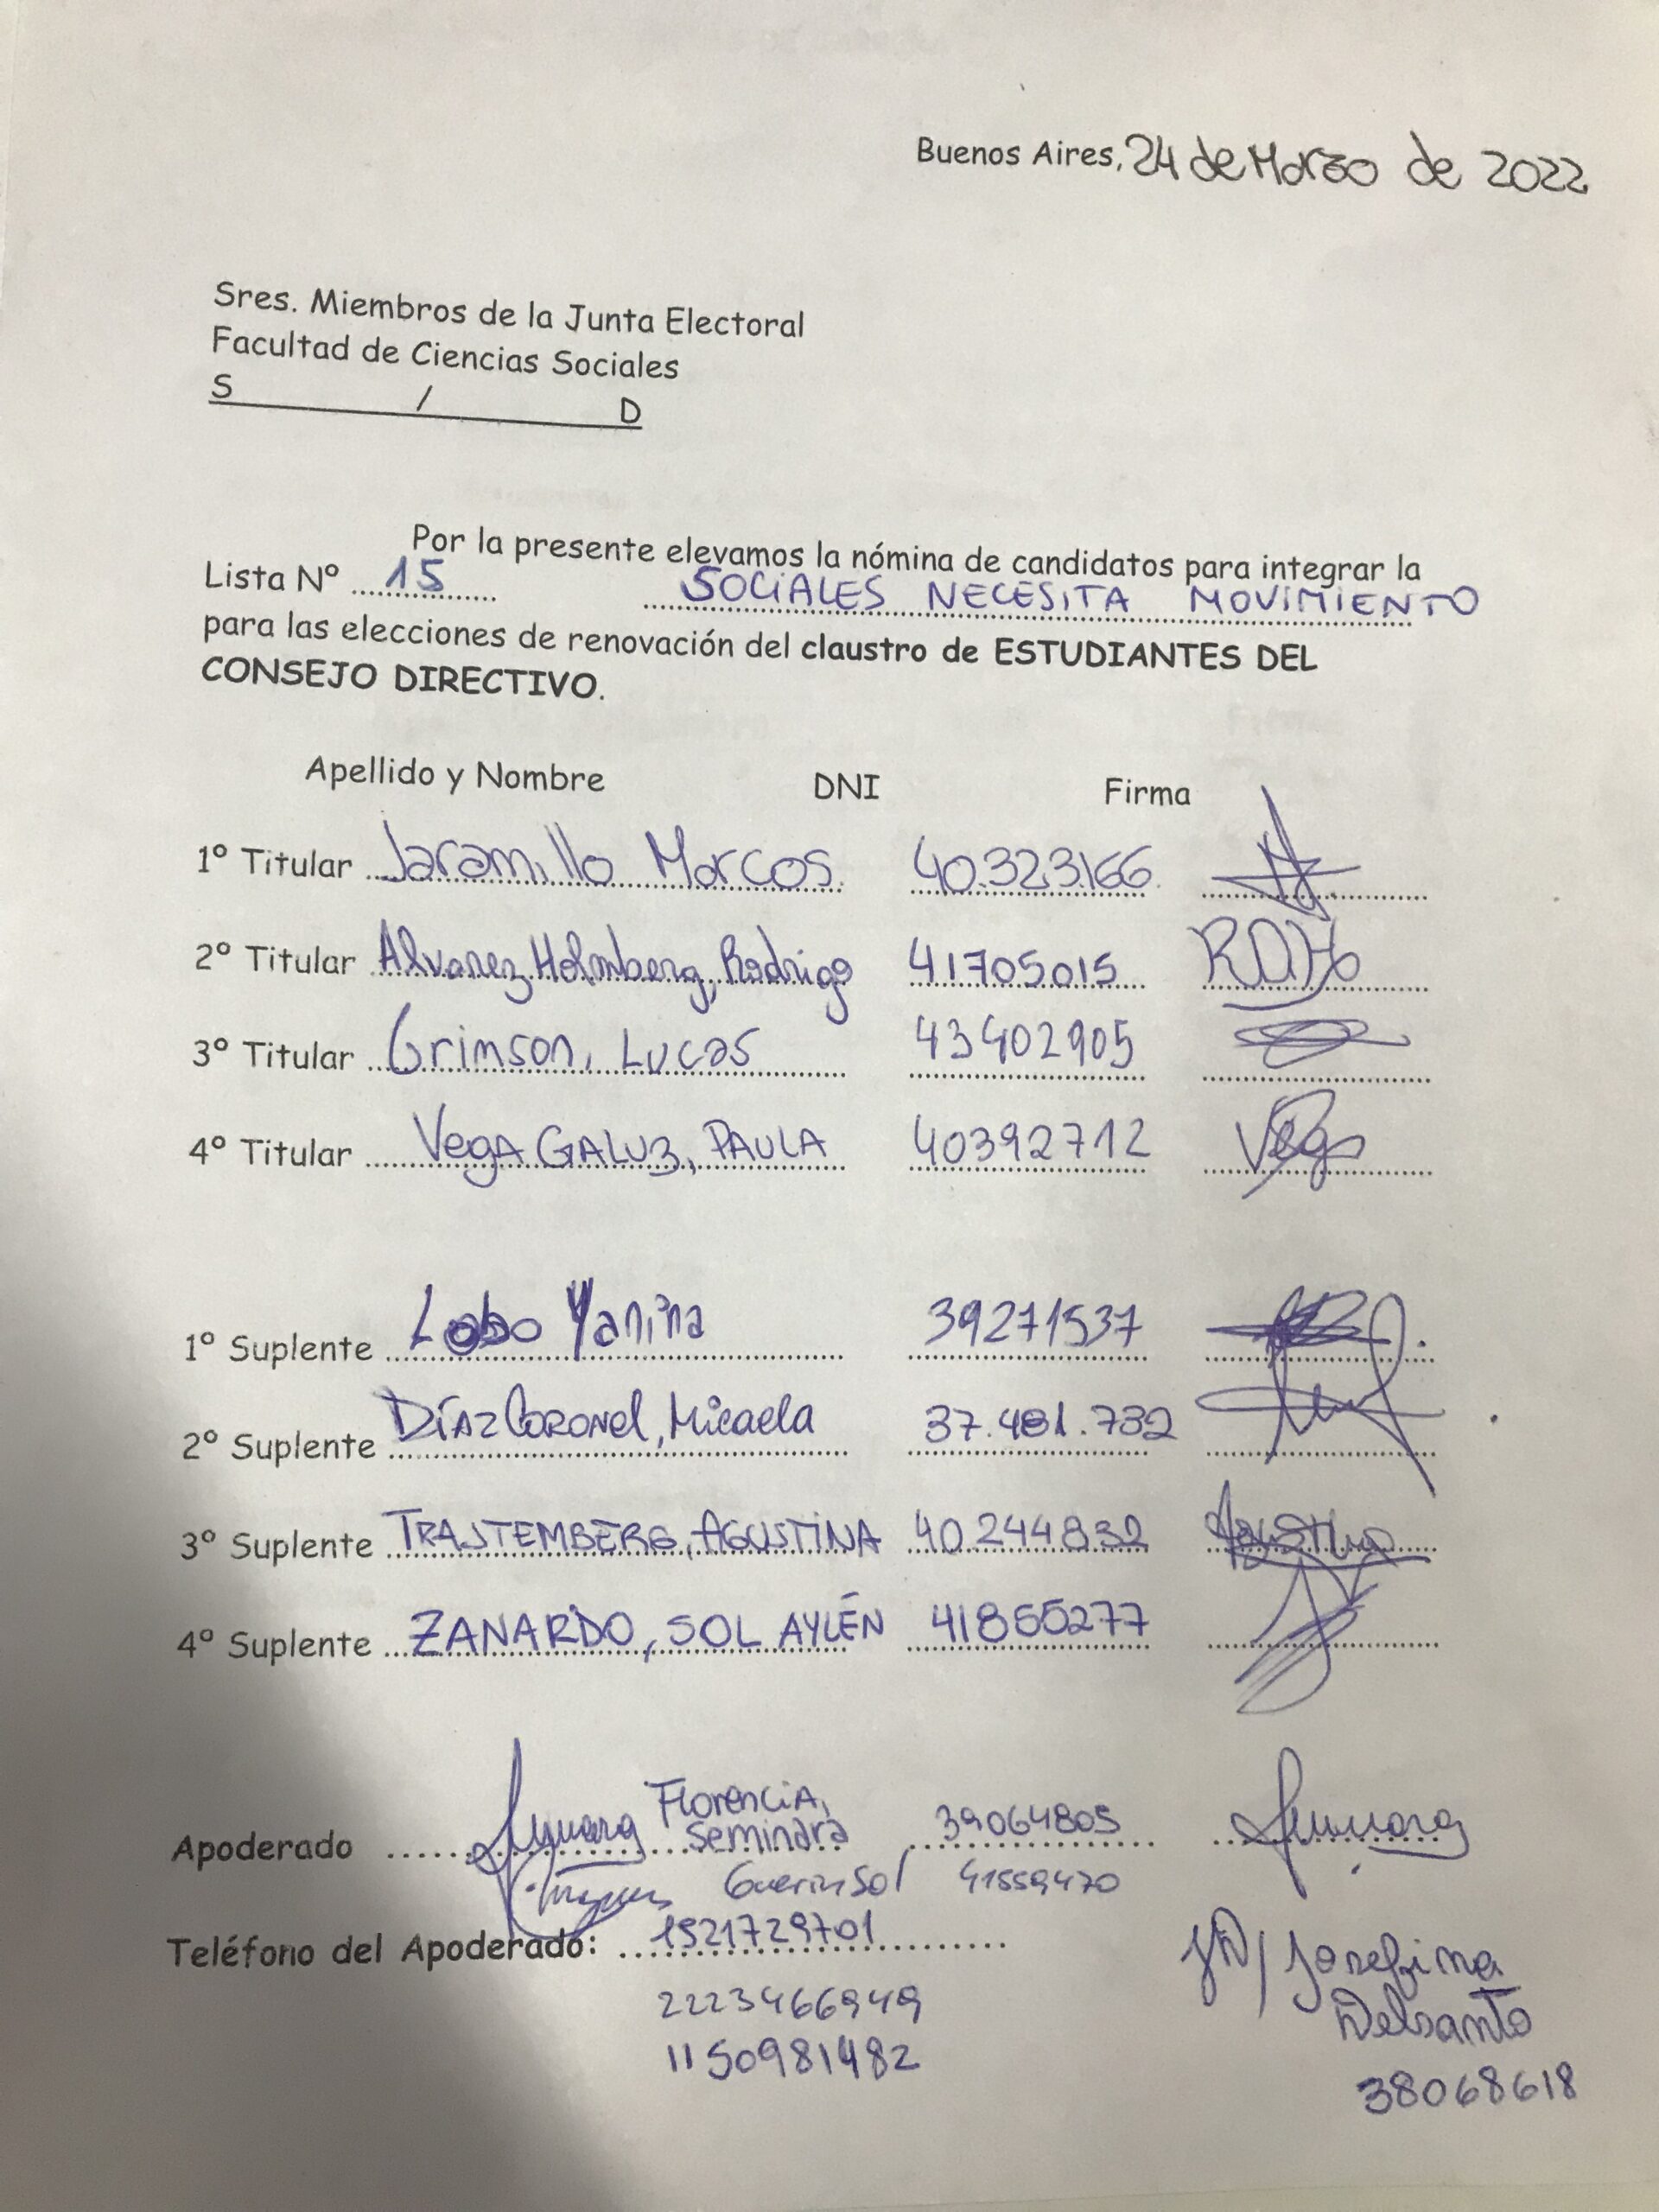 Buenos Aires, 24 de Marzo de 2022
Sres. Miembros de la Junta Electoral
Facultad de Ciencias Sociales
S / D
Por la presente elevamos la nómina de candidatos para integrar la
Lista Nº 15 SOCIALES NECESITA MOVIMIENTO
para las elecciones de renovación del claustro de ESTUDIANTES DEL
CONSEJO DIRECTIVO.
Apellido y Nombre DNI Firma
1º Titular Jaramillo Marcos 40.323.166
2º Titular Alvarez Holmberg, Rodrigo 41705015
3º Titular Grimson, Lucas 43402905
4º Titular Vega GALUZ, PAULA 40392712 Vega
1º Suplente Lobo Yanina 39271537
2º Suplente Díaz Coronel, Micaela 37.481.732
3º Suplente TRASTEMBERG, AGUSTINA 40244832 Agustina
4º Suplente ZANARDO, SOL AYLÉN 41855277
Apoderado Florencia, Seminara 39064805
Guerin Sol 41559470
Teléfono del Apoderado: 1521729701
2223466949
1150981482
Josefina
Delsanto
38068618